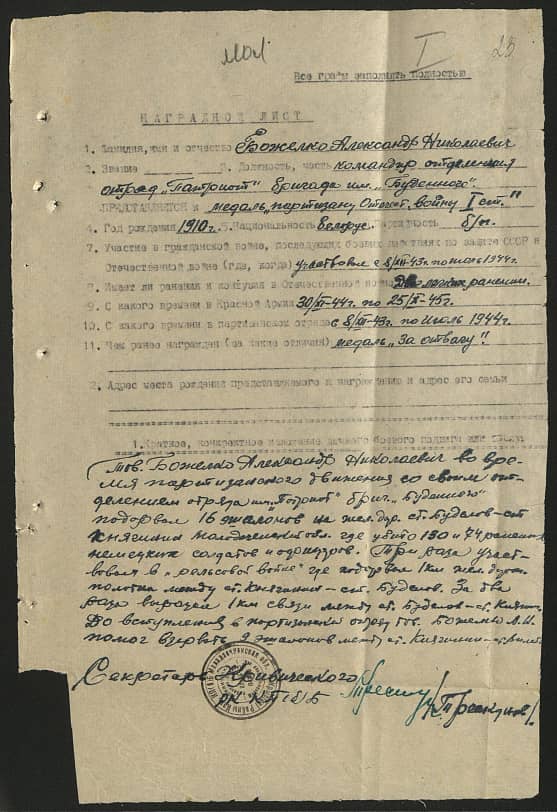 I 25
Все графы заполнять полностью
НАГРАДНОЙ ЛИСТ
1. Фамилия, имя и отчество Божелко Александр Николаевич
2. Звание 3. Должность, часть командир отделения
отряд "Патриот" бригада им. "Буденного".
ПРЕДСТАВЛЯЕТСЯ к медаль "партизану Отечест. войны I ст."
4. Год рождения 1910 г. Национальность Белорус. партийность б/п.
7. Участие в гражданской войне, последующих боевых действиях по защите СССР и
Отечественной войне (где, когда) участвовал с 8/VIII-43г. по июль 1944г.
8. Имеет ли ранения и контузии в Отечественной войне легких ранения.
9. С какого времени в Красной Армии
10. С какого времени в партизанском отряде с 8/VIII-43г. по Июль 1944г.
11. Чем ранее награжден (за какие отличия) медаль "За отвагу".
2. Адрес места рождения представляемого к награждению и адрес его семьи
1. Краткое, конкретное изложение личного боевого подвига или заслуг
Тов. Божелко Александр Николаевич во вре-
мя партизанского движения со своим от-
делением отряда им. "Патриот" бриг. "Буденного"
подорвал 16 эшалонов на жел. дор. ст. Будслов-ст.
Княгинин молодечненской обл. где убито 130 и 74 ранено
немецких солдат и офицеров. Три раза участ-
вовал в "рельсовой войне" где подорвал 1км жел. дорож.
полотна между ст. Княгинин-ст. Будслов. За два
раза вырезал 1км связи между ст. Будслов-ст. Княгин.
До вступления в партизанский отряд тов. Божелко А.Н.
помог взорвать 2 эшалона между ст. Княгинин-ст.
Секретарь Кривического
РК КП(б)Б